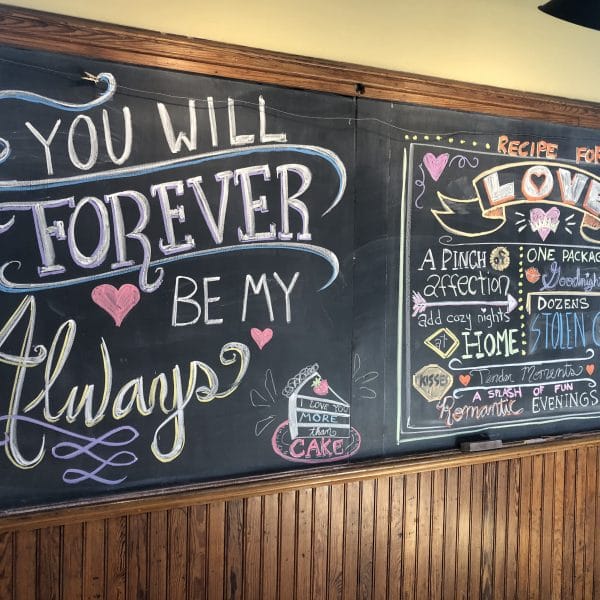 YOU WILL
FOREVER
BE MY
Always
I LOVE YOU
MORE
than
CAKE
RECIPE FOR
LOVE
A PINCH of
affection
add cozy nights
at HOME
KISSES
ONE PACKAGE
Goodnight
DOZENS
STOLEN
Tender Moments
A SPLASH OF FUN
Romantic EVENINGS